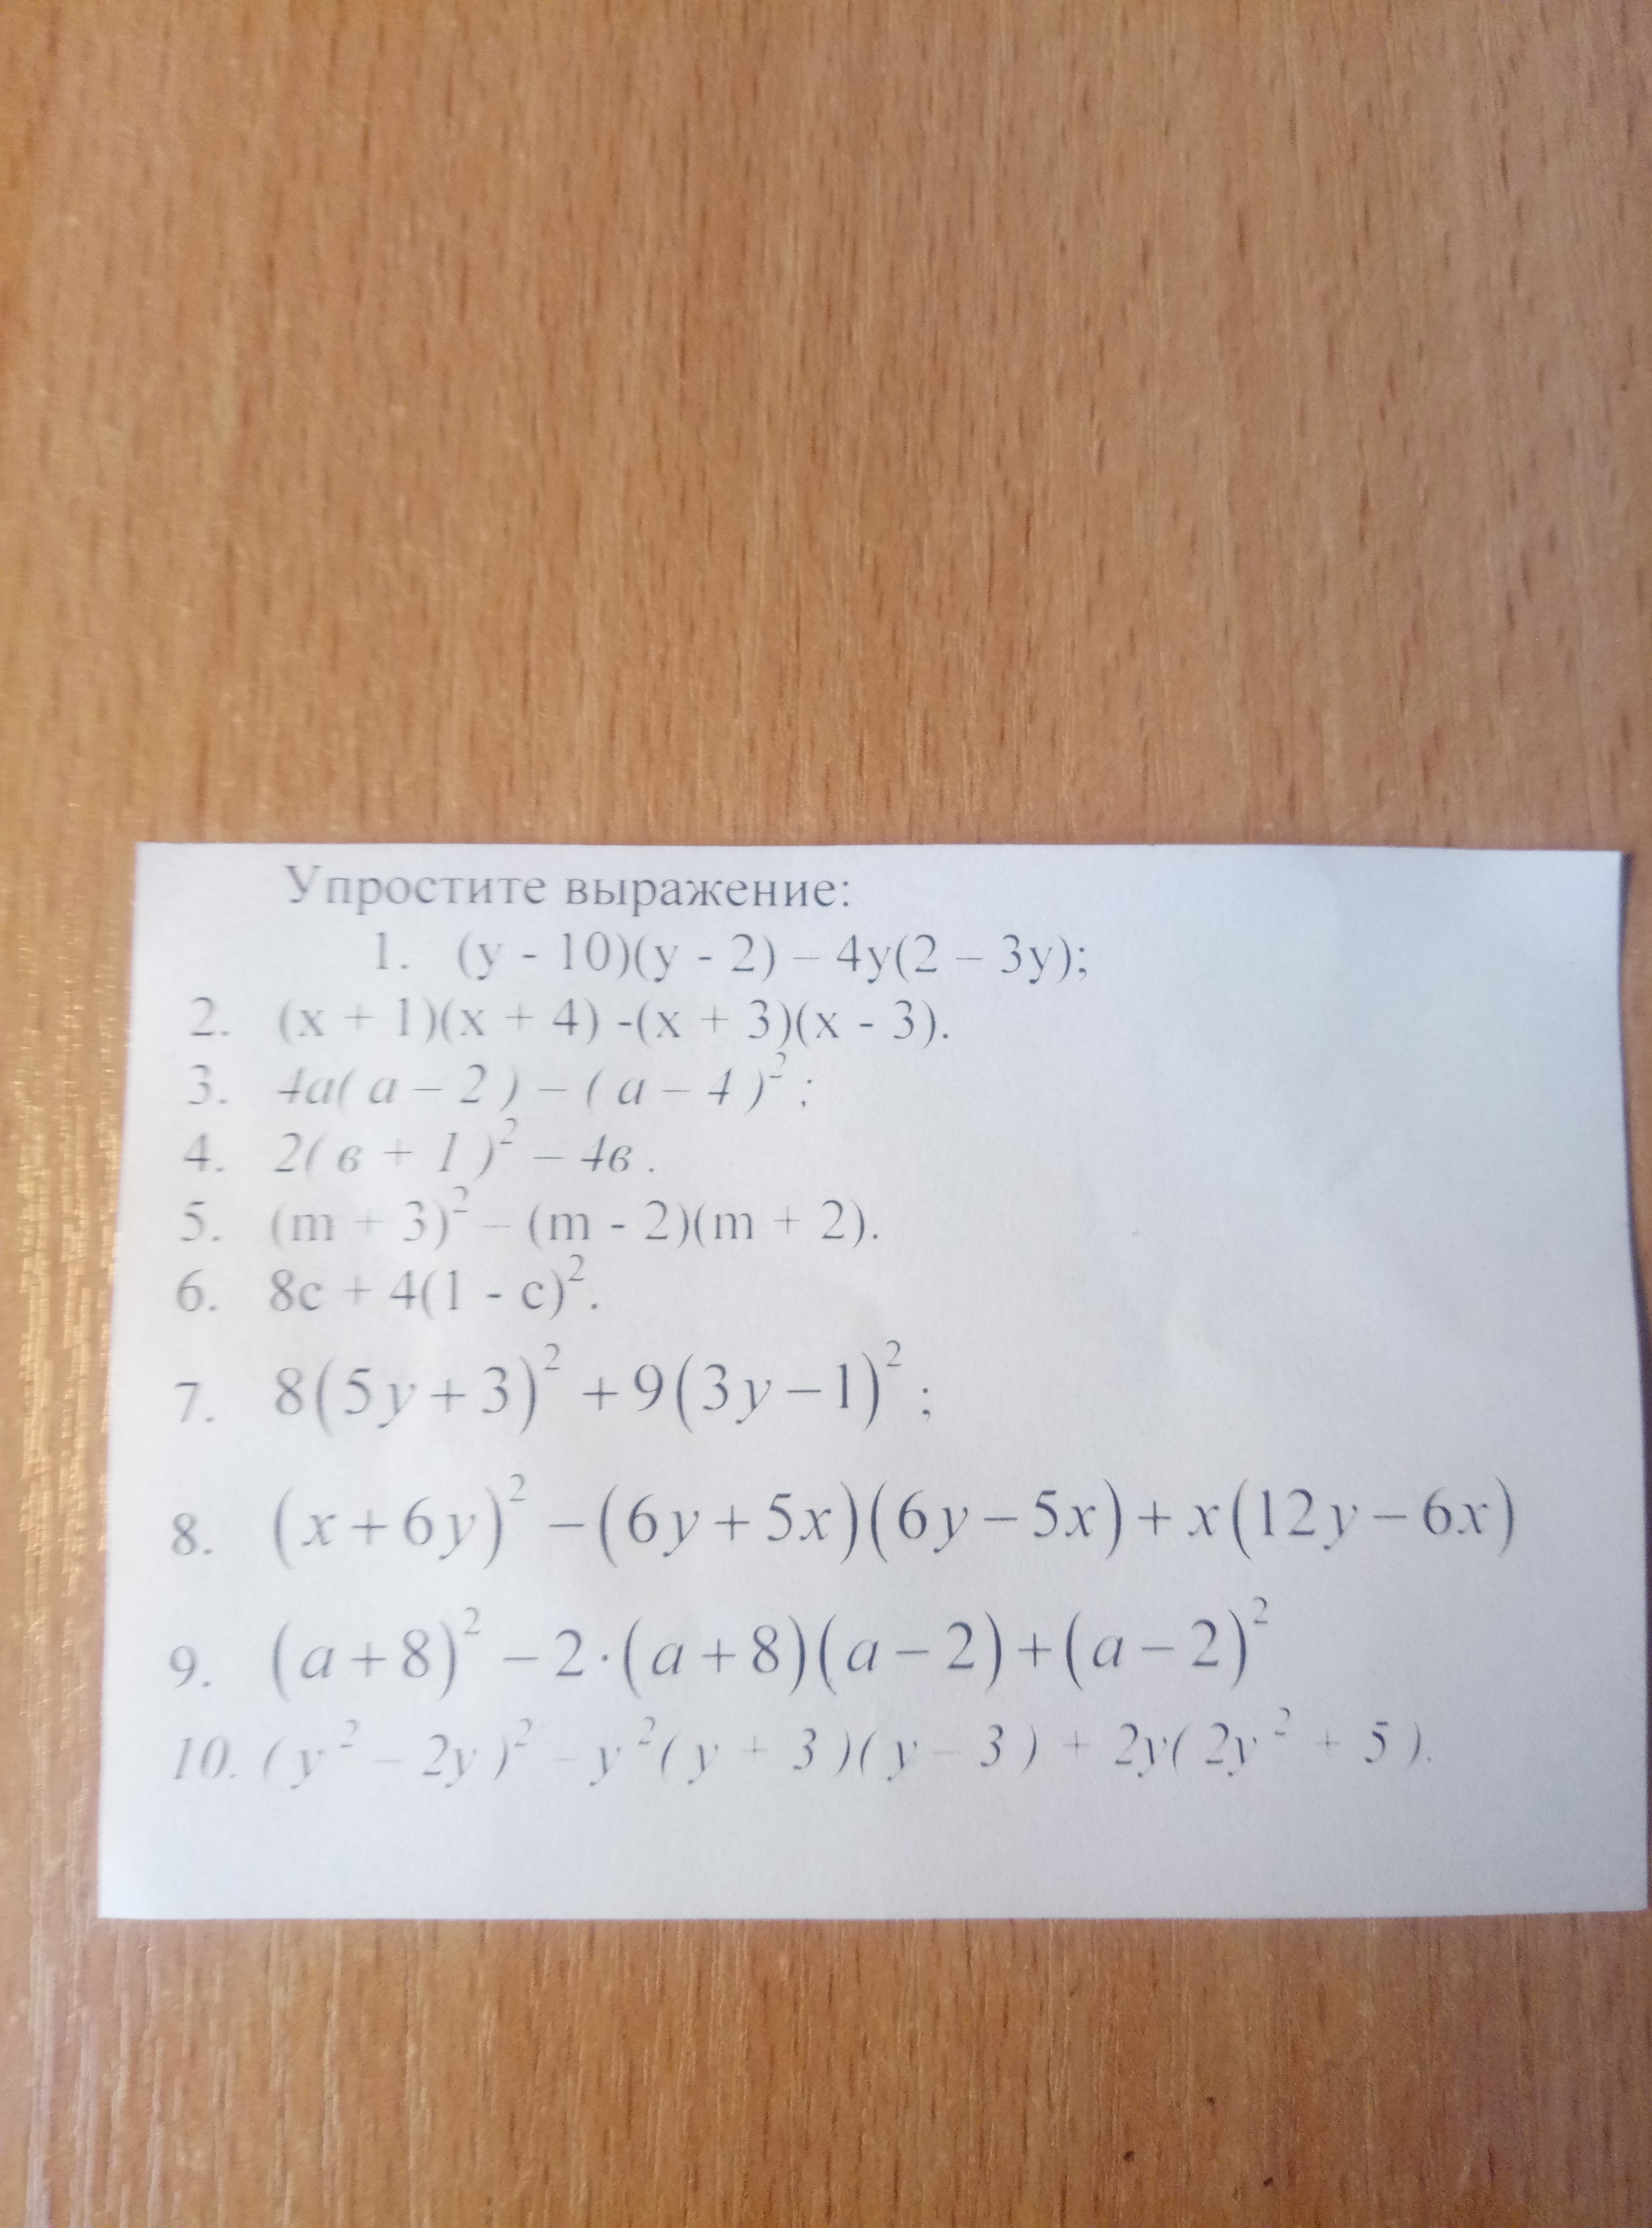 Упростите выражение:
1. (y - 10)(y - 2) – 4y(2 – 3y);
2. (x + 1)(x + 4) -(x + 3)(x - 3).
3. 4a( a – 2 ) – ( a – 4 )² ;
4. 2( в + 1 )² – 4в .
5. (m + 3)² – (m - 2)(m + 2).
6. 8c + 4(1 - c)².
7. 8(5y+3)² +9(3y−1)² ;
8. (x+6y)² −(6y+5x)(6y−5x)+x(12y−6x)
9. (a+8)² −2·(a+8)(a−2)+(a−2)²
10. ( y ² – 2y )² – y ²( y + 3 )( y – 3 ) + 2y( 2y ² + 5 ).